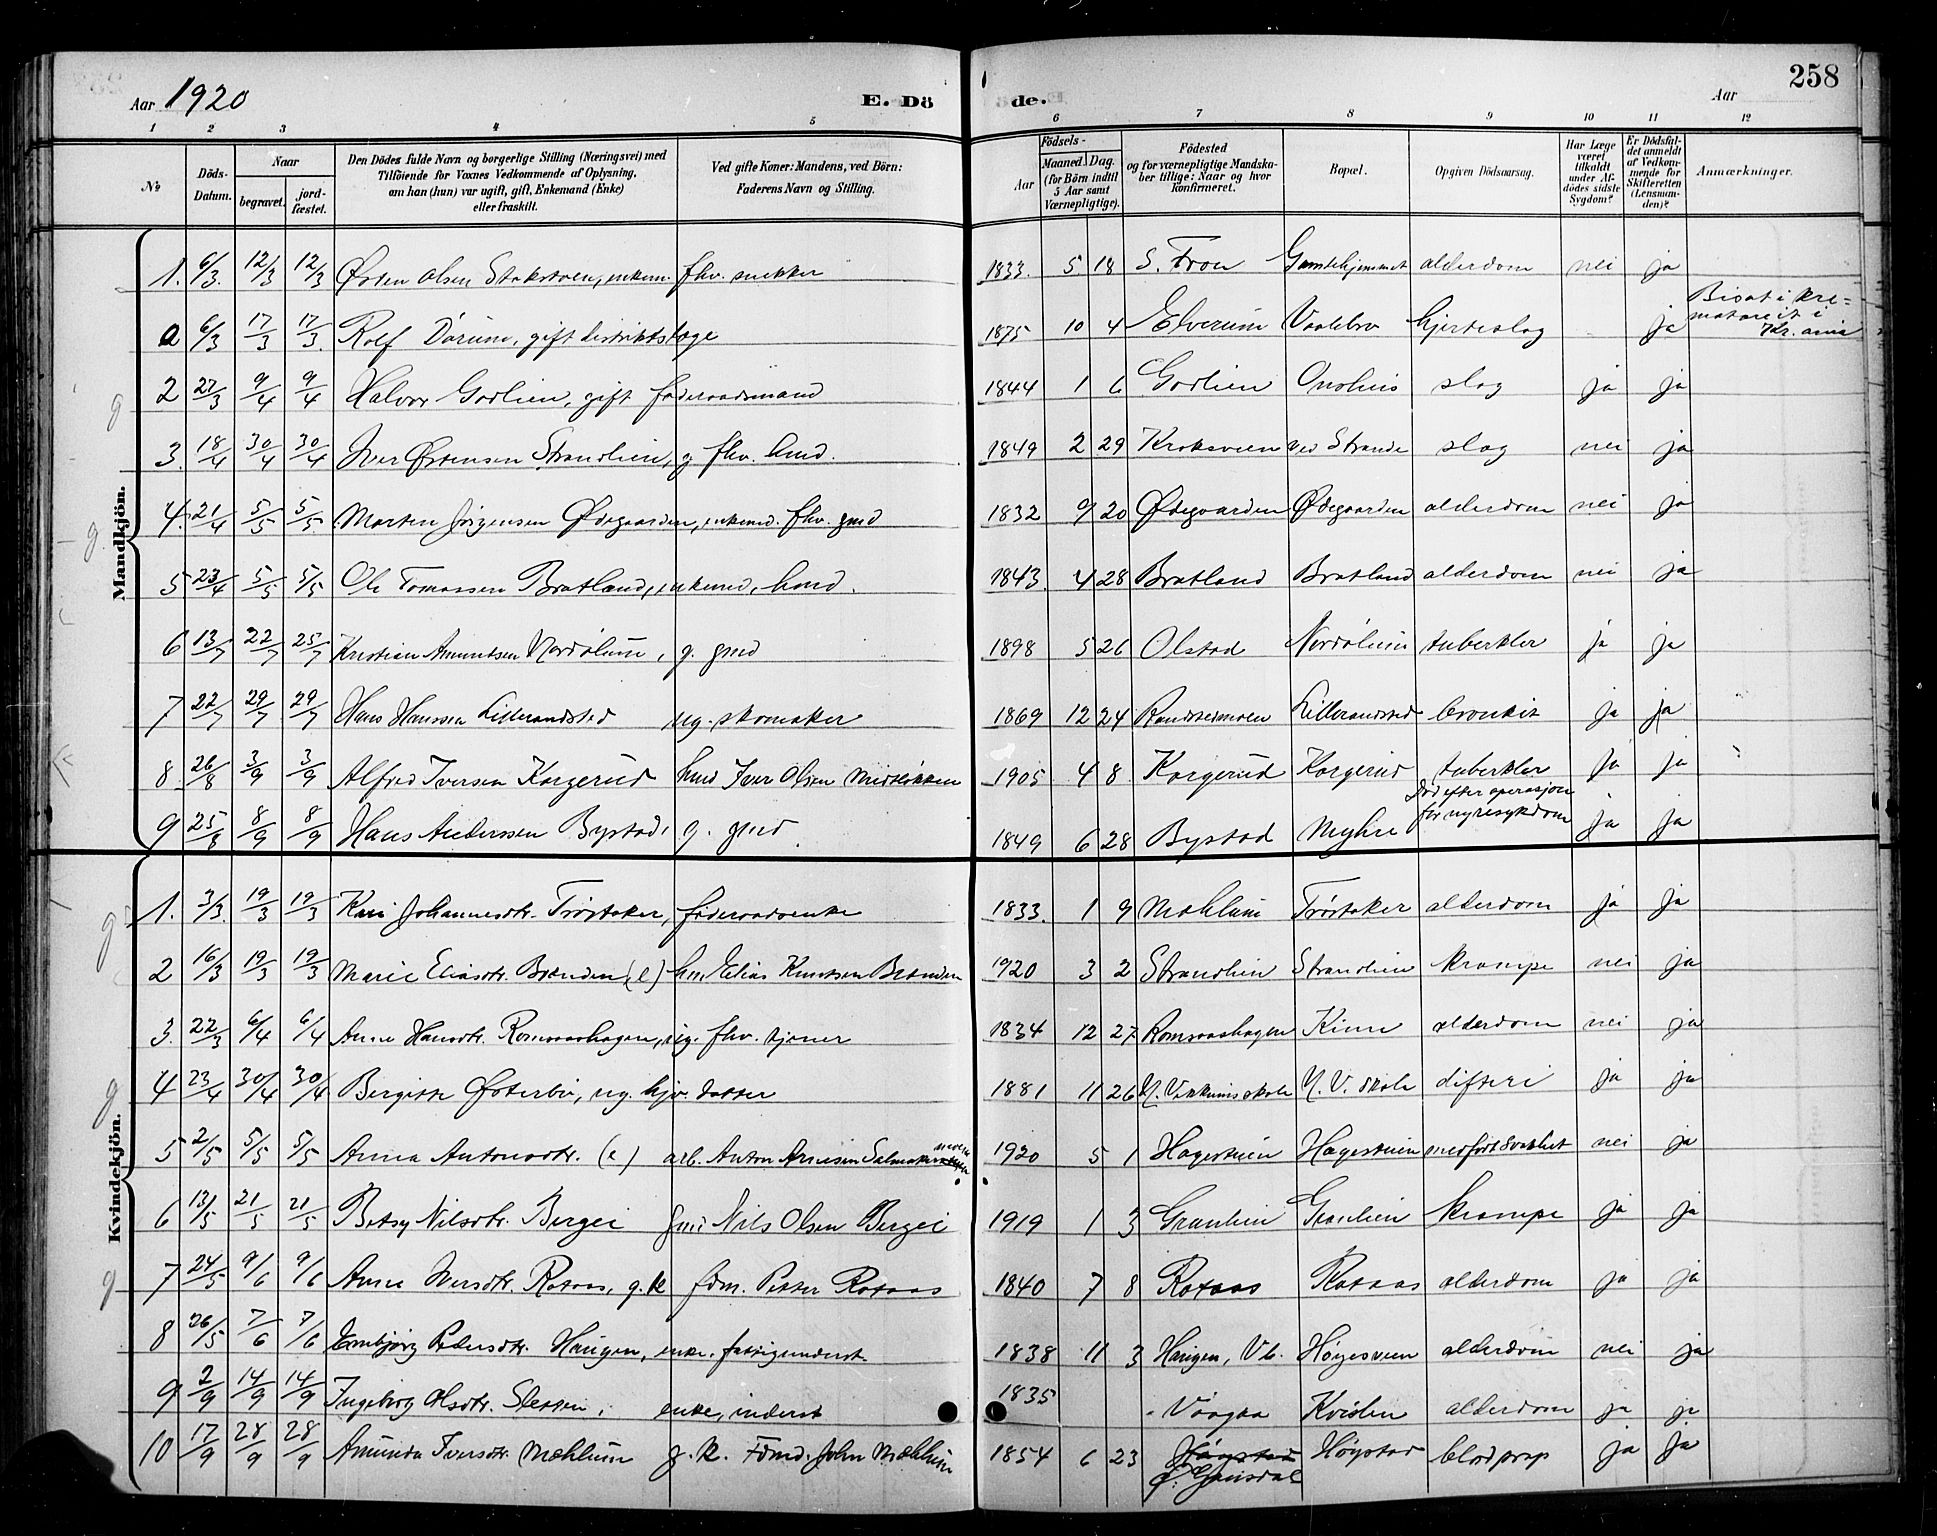 Aar 1920 E. Dö de. Aar 258
1 2 3 4 5 6 7 8 9 10 11 12
No Döds-Datum. Naar begravet. jord-fæstet. Den Dödes fulde Navn og borgerlige Stilling (Næringsvei) med Tilföiende for Voxnes Vedkommende af Oplysning. om han (hun) var ugift, gift, Enkemand (Enke) eller fraskilt. Ved gifte Koner: Mandens, ved Börn: Faderens Navn og Stilling. Födsels- Aar Maaned Dag. (for Börn indtil 5 Aar samt Værnepligtige). Födested og for værnepligtige Mandskaber tillige: Naar og hvor konfirmeret. Bopæl. Opgiven Dödsaarsag. Har Læge været tilkaldt under Afdödes sidste Sygdom? Er Dödsfaldet anmeldt af Vedkommende for Skifteretten (Lensmanden)? Anmærkninger.
Mandkjön.
1. 6/3. 12/3 12/3 Østen Olsen Stokstven, enkem. fhv. snekker 1833. 5 18 S. Fron Gamlehjemmet alderdom nei ja
a 6/3 17/3 17/3. Rolf Dørum, gift distriktslæge 1875 10 4 Elverum Vaalebro hjerteslag ja Bisat i kre=matoreit i Kr.ania
2 27/3 9/4 9/4 Halvor Godlien, gift føderaadsmand 1844 1 6 Godlien Onsheus slag ja ja
3. 18/4 30/4 30/4 Iver Østensen Strandlien, g. fhv. hmd. 1849 2 29 Kroksveen ved Strande slag nei ja
4. 21/4 5/5 5/5. Morten Jørgensen Ødegaarden, enkemd. fhv. gmd 1832 9 20 Ødegaarden Ødegaarden alderdom nei ja
5 23/4 5/5 5/5 Ole Tomassen Bratland, enkemd, hmd. 1843. 4 28 Bratland Bratland alderdom nei ja
6 13/7 22/7 25/7 Kristian Amundsen Nordølum, g. gmd 1898 5 26 Olstad Nordølum tuberkler ja ja
7 22/7 29/7 29/7 Hans Hanssen Lillerandsted ug. skomaker 1869 12 24 Randstedmoen Lillerandsted bronkit ja ja
8. 26/8 3/9 3/9 Alfred Iversen Korgerud hmd Iver Olsen Midtløkken 1905 4 8 Korgerud Korgerud tuberkler ja ja
9 25/8 8/9 8/9 Hans Anderssen Bystad, g. gmd. 1849 6 28 Bystad Myhre Død efter operasjon for nyresykdom ja ja
Kvindekjön.
1. 3/3. 19/3 19/3 Kari Johannesdtr. Trøstaker, føderaadsenke 1833. 1 9 Mæhlum Trøstaker alderdom ja ja
2 16/3 19/3 19/3 Marie Eliasdtr. Brænden (e) hm. Elias Knutsen Brænden 1920 3 2 Strandlien Strandlien krampe nei ja
3. 22/3 6/4 6/4 Anne Hansdtr. Romsaashagen, ug. fhv. tjener 1834 12 27 Romsaashagen Kinn alderdom nei ja
4 23/4 30/4 30/4 Bergitte Østerbø, ug. hjv. datter 1881 11 26 N. Vekkums skole N. V. skole difteri ja ja
5 2/5 5/5 5/5 Anna Antonsdtr. (e) arb. Anton Arnesen Salmaker 1920 5 1 Hagestuen Hagestuen medfødt svakhet nei ja
6 13/5 21/5 21/5 Betsy Nilsdtr. Bergei gmd Nils Olsen Bergei 1919 1 3 Granlien Granlien krampe ja ja
7 24/5 9/6 9/6 Anne Iversdtr. Rotaas, g. k fdm. Petter Rotaas 1840 7 8 Rotaas Rotaas alderdom ja ja
8 26/5 7/6 7/6 Embjørg Pedersdtr. Haugen, enke. fattigunderst. 1838 11 3 Haugen, Vb. Høgesveen alderdom nei ja
9 2/9 14/9 14/9 Ingeborg Olsdtr. Sletten, enke, inderst 1835 Vaagaa Kvislen alderdom ja ja
10 17/9 28/9 28/9 Amunda Iversdtr. Mæhlum g. k. Fdmd. John Mæhlum 1854 6 23 Høystad Ø. Gausdal Høystad blodprop ja ja